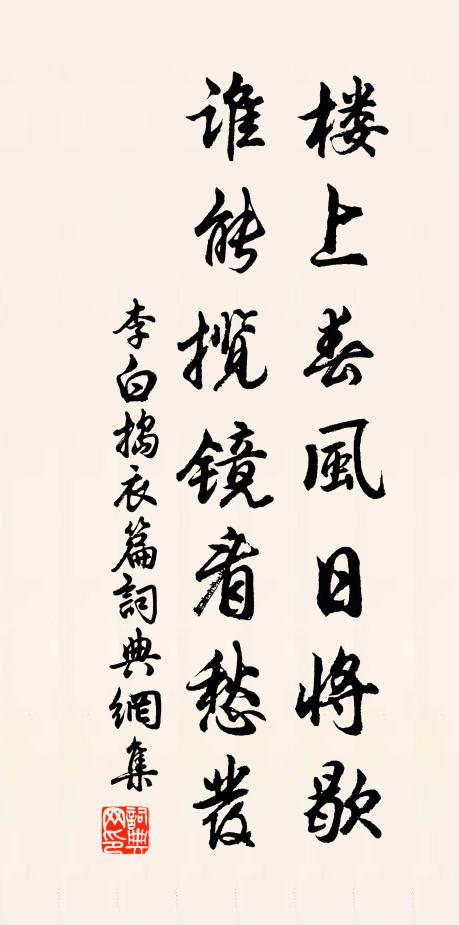 楼上春風日將歇
谁能揽镜看愁髮
李白搗衣篇詞典網集
詞典网印